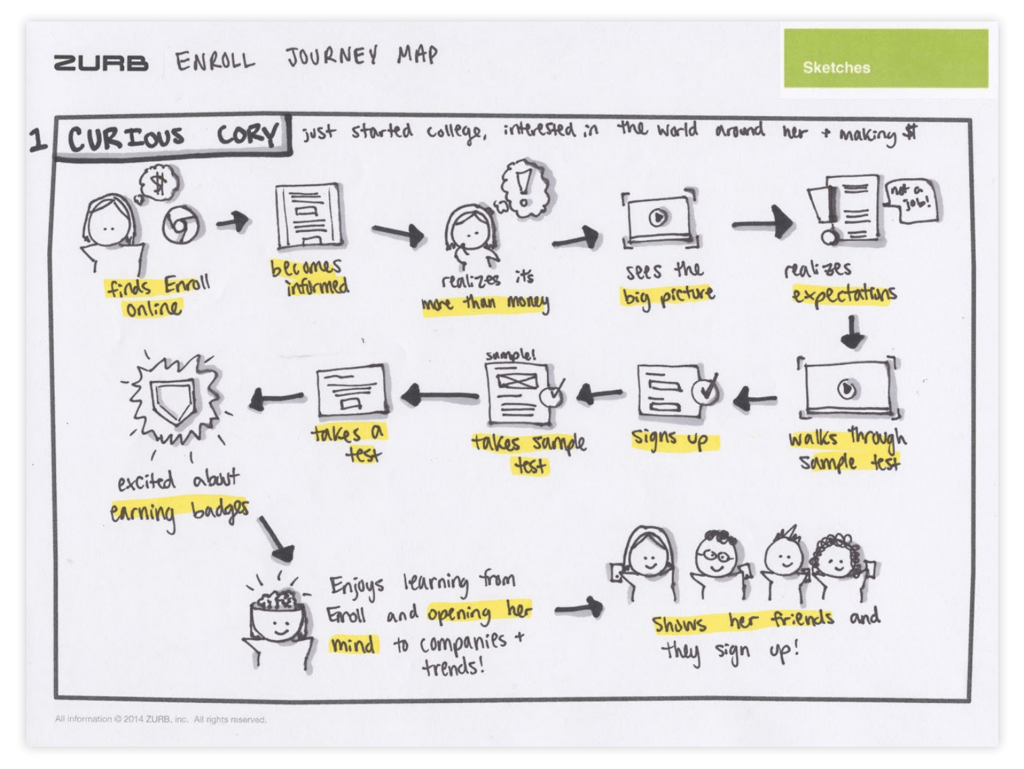 ZURB ENROLL JOURNEY MAP
Sketches
1 CURIOUS CORY just started college, interested in the world around her + making $
$
!
not a
job!
finds Enroll
online
becomes
informed
realizes its
more than money
sees the
big picture
realizes
expectations
sample!
excited about
earning badges
takes a
test
takes sample
test
signs up
walks through
sample test
Enjoys learning from
Enroll and opening her
mind to companies +
trends!
Shows her friends and
they sign up!
All information © 2014 ZURB, inc. All rights reserved.